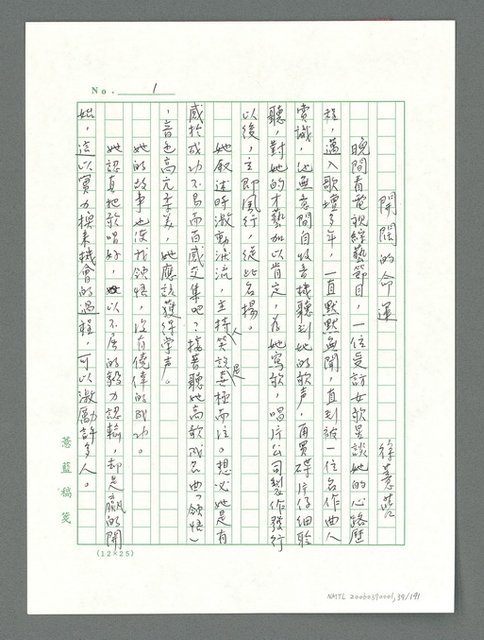 No. 1
開闊的命運
徐薏藍
晚間看電視綜藝節目，一位受訪女歌星談她的心路歷
程，邁入歌壇多年，一直默默無聞，直到被一位名作曲人
賞識，他無意間自收音機聽到她的歌声，再買碟片仔細聆
聽，對她的才藝加以肯定，為她寫歌，唱片公司製作發行
以後，立即風行，從此名揚。
她敘述時激動淚流，主持人笑說是喜極而泣。想必她是有
感於成功不易而百感交集吧？接著聽她高歌成名曲「領悟」
，音色高亢柔美，她應該獲得掌声。
她的故事也使我領悟，沒有僥倖的成功。
她認真地歌唱好，以不屈的毅力認輸，却是贏的開
始，這以實力換來機會的過程，可以激勵許多人。
薏藍稿箋
(12×25)
NMTL 20060390001, 39/191